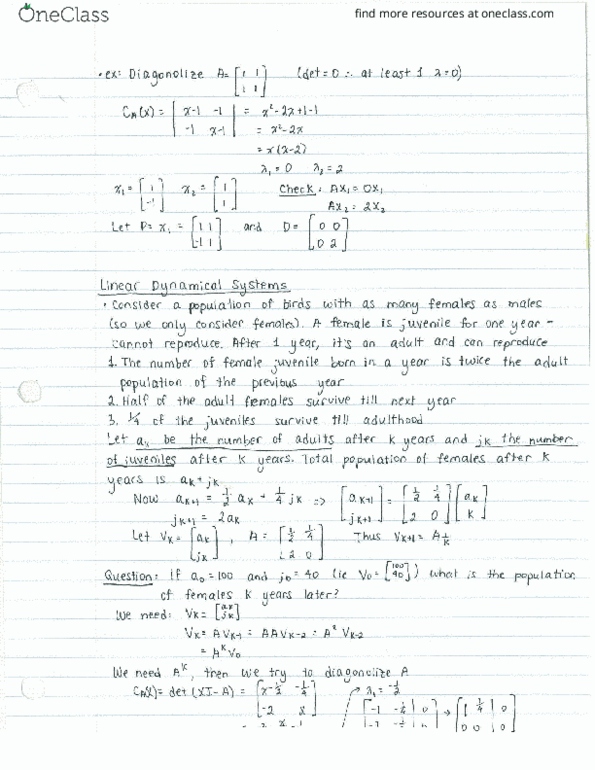 OneClass
find more resources at oneclass.com
• ex: Diagonolize A = [1 1; 1 1] (det = 0 ∴ at least 1 λ=0)
C_A(x) = | x-1 -1; -1 x-1 | = x²-2x+1-1
= x²-2x
= x(x-2)
λ₁ = 0 λ₂ = 2
x₁ = [1; -1] x₂ = [1; 1] Check: Ax₁ = 0x₁
Ax₂ = 2x₂
Let P = x₁ = [1 1; -1 1] and D = [0 0; 0 2]
Linear Dynamical Systems
• Consider a population of birds with as many females as males
(so we only consider females). A female is juvenile for one year -
cannot reproduce. After 1 year, it's an adult and can reproduce
1. The number of female juvenile born in a year is twice the adult
population of the previous year
2. Half of the adult females survive till next year
3. 1/4 of the juveniles survive till adulthood
Let aₖ be the number of adults after k years and jₖ the number
of juveniles after k years. Total population of females after k
years is aₖ + jₖ
Now aₖ₊₁ = 1/2 aₖ + 1/4 jₖ => [aₖ₊₁; jₖ₊₁] = [1/2 1/4; 2 0] [aₖ; k]
jₖ₊₁ = 2aₖ
Let Vₖ = [aₖ; jₖ], A = [1/2 1/4; 2 0] Thus Vₖ₊₁ = A
Question: If a₀ = 100 and j₀ = 40 (ie V₀ = [100; 40]) what is the population
of females k years later?
We need: Vₖ = [aₖ; jₖ]
Vₖ = AVₖ₋₁ = AAVₖ₋₂ = A² Vₖ₋₂
= Aᵏ V₀
We need Aᵏ, then we try to diagonolize A
C_A(x) = det (xI-A) = [x-1/2 -1/4; -2 x] λ₁ = -1/2
[-1 -1/4 | 0 → [1 1/4 | 0; 0 0 | 0]